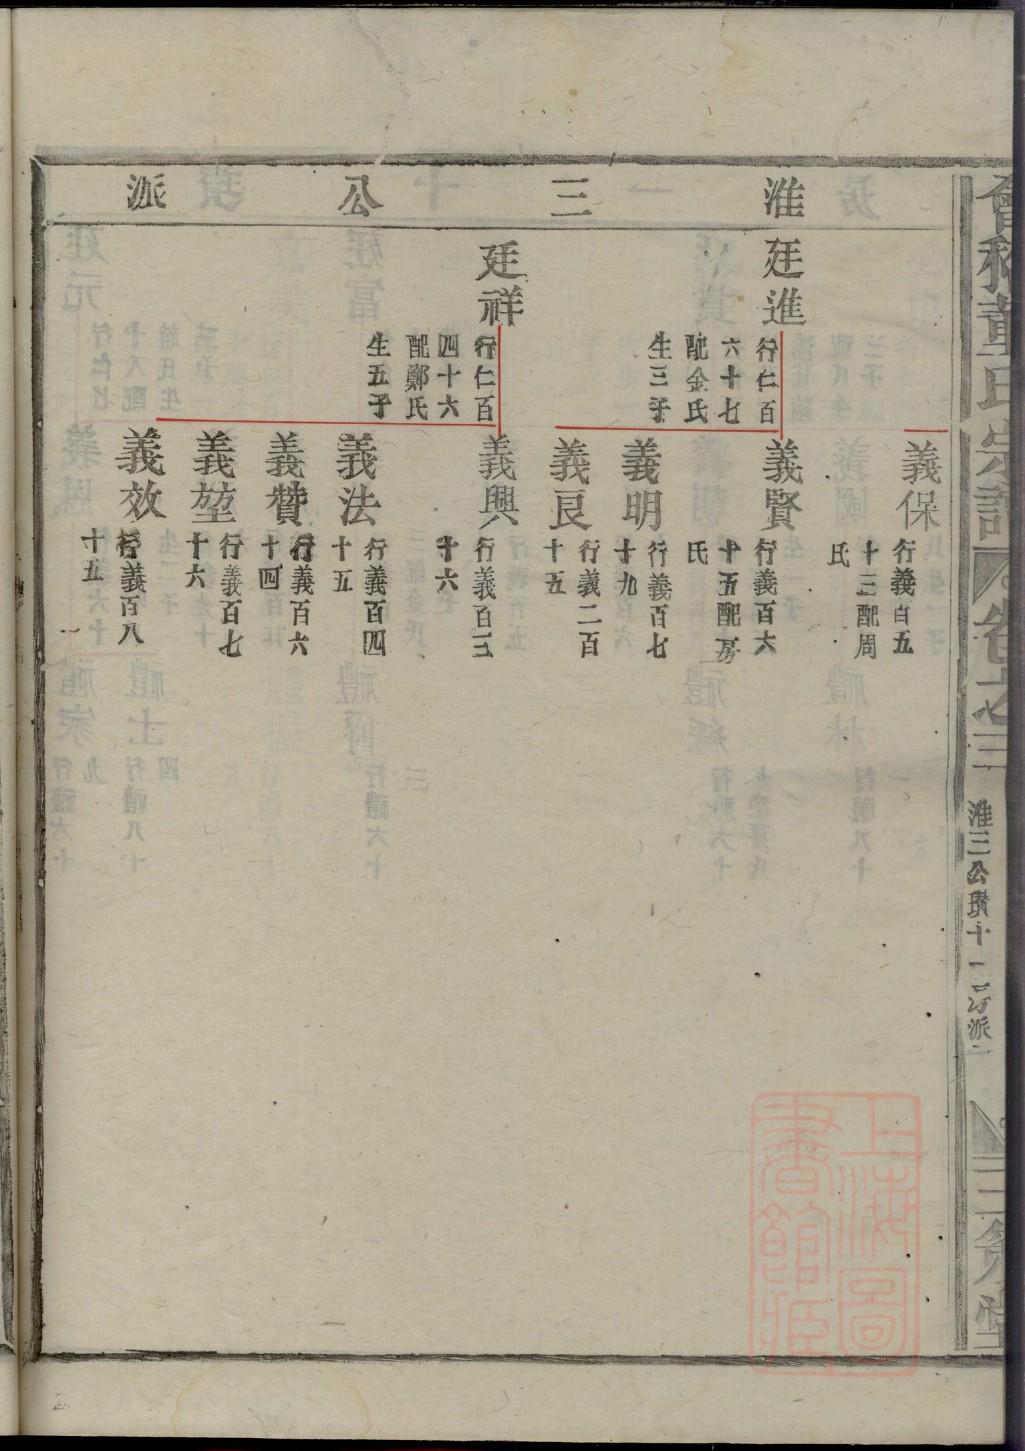 淮三公派
義保
行義百五
十三配周
氏
廷進
行仁百
六十七
配金氏
生三子
義賢
行義百六
十五配房
氏
義明
行義百七
十九
義良
行義二百
十五
廷祥
行仁百
四十六
配鄭氏
生五子
義興
行義百三
十六
義法
行義百四
十五
義贊
行義百六
十四
義堃
行義百七
十六
義效
行義百八
十五
董氏宗譜
卷之三
淮三公
十一
派二
三策堂
上海圖書館藏